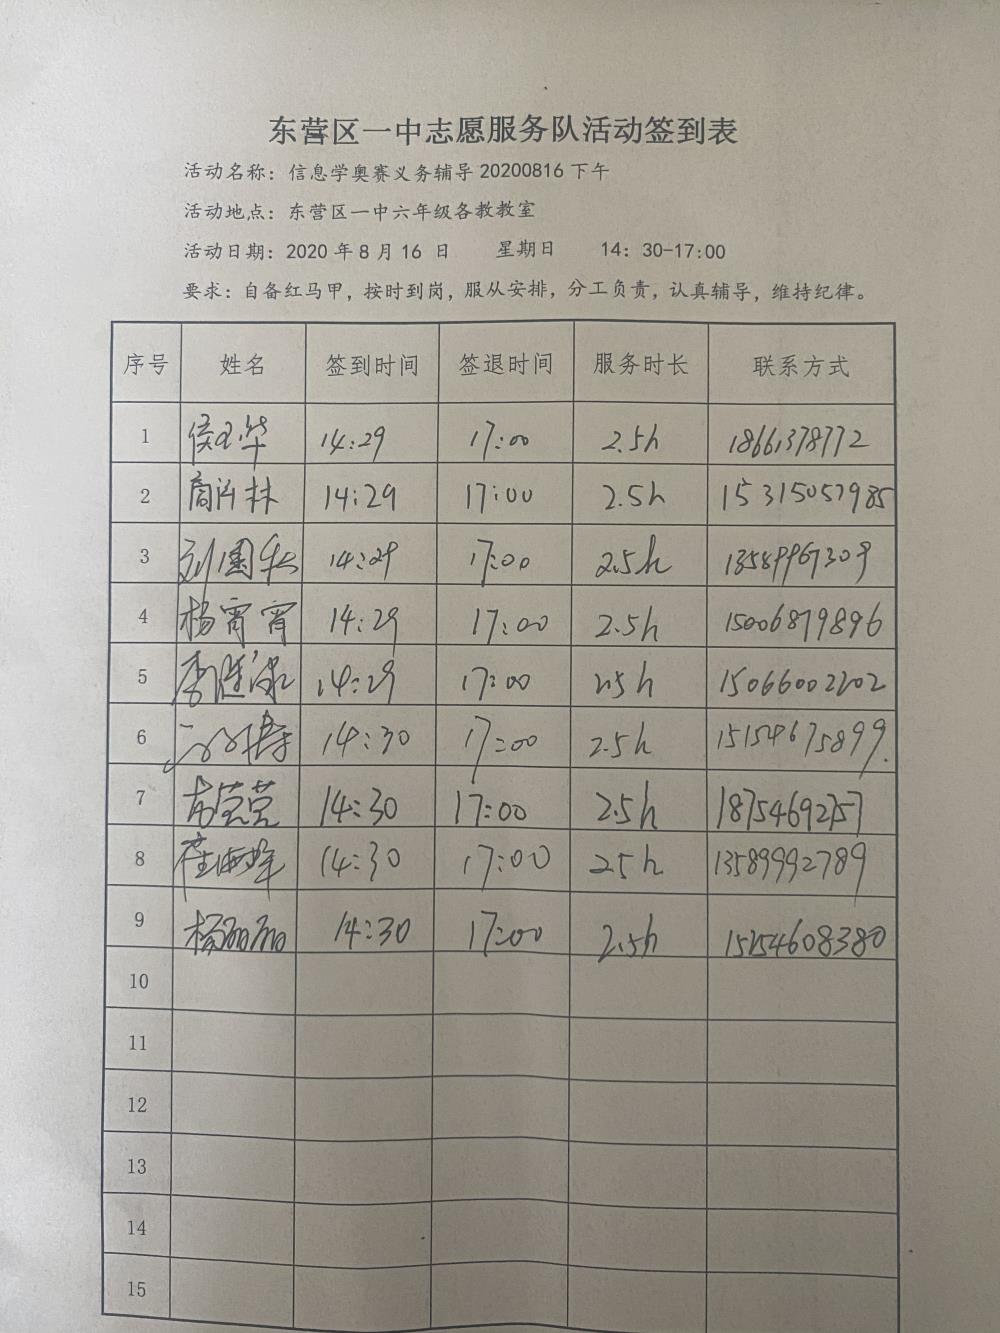 东营区一中志愿服务队活动签到表
活动名称：信息学奥赛义务辅导 20200816 下午
活动地点：东营区一中六年级各教教室
活动日期：2020 年 8 月 16 日 星期日 14：30-17:00
要求：自备红马甲，按时到岗，服从安排，分工负责，认真辅导，维持纪律。
序号 姓名 签到时间 签退时间 服务时长 联系方式
1 14:29 17:00 2.5h 18661378772
2 14:29 17:00 2.5h 15315057985
3 14:29 17:00 2.5h 13589967309
4 杨宵宵 14:29 17:00 2.5h 15006879896
5 14:29 17:00 2.5h 15066002202
6 14:30 17:00 2.5h 15154675899
7 14:30 17:00 2.5h 18754692757
8 14:30 17:00 2.5h 13589992789
9 杨丽丽 14:30 17:00 2.5h 15154608380
10
11
12
13
14
15